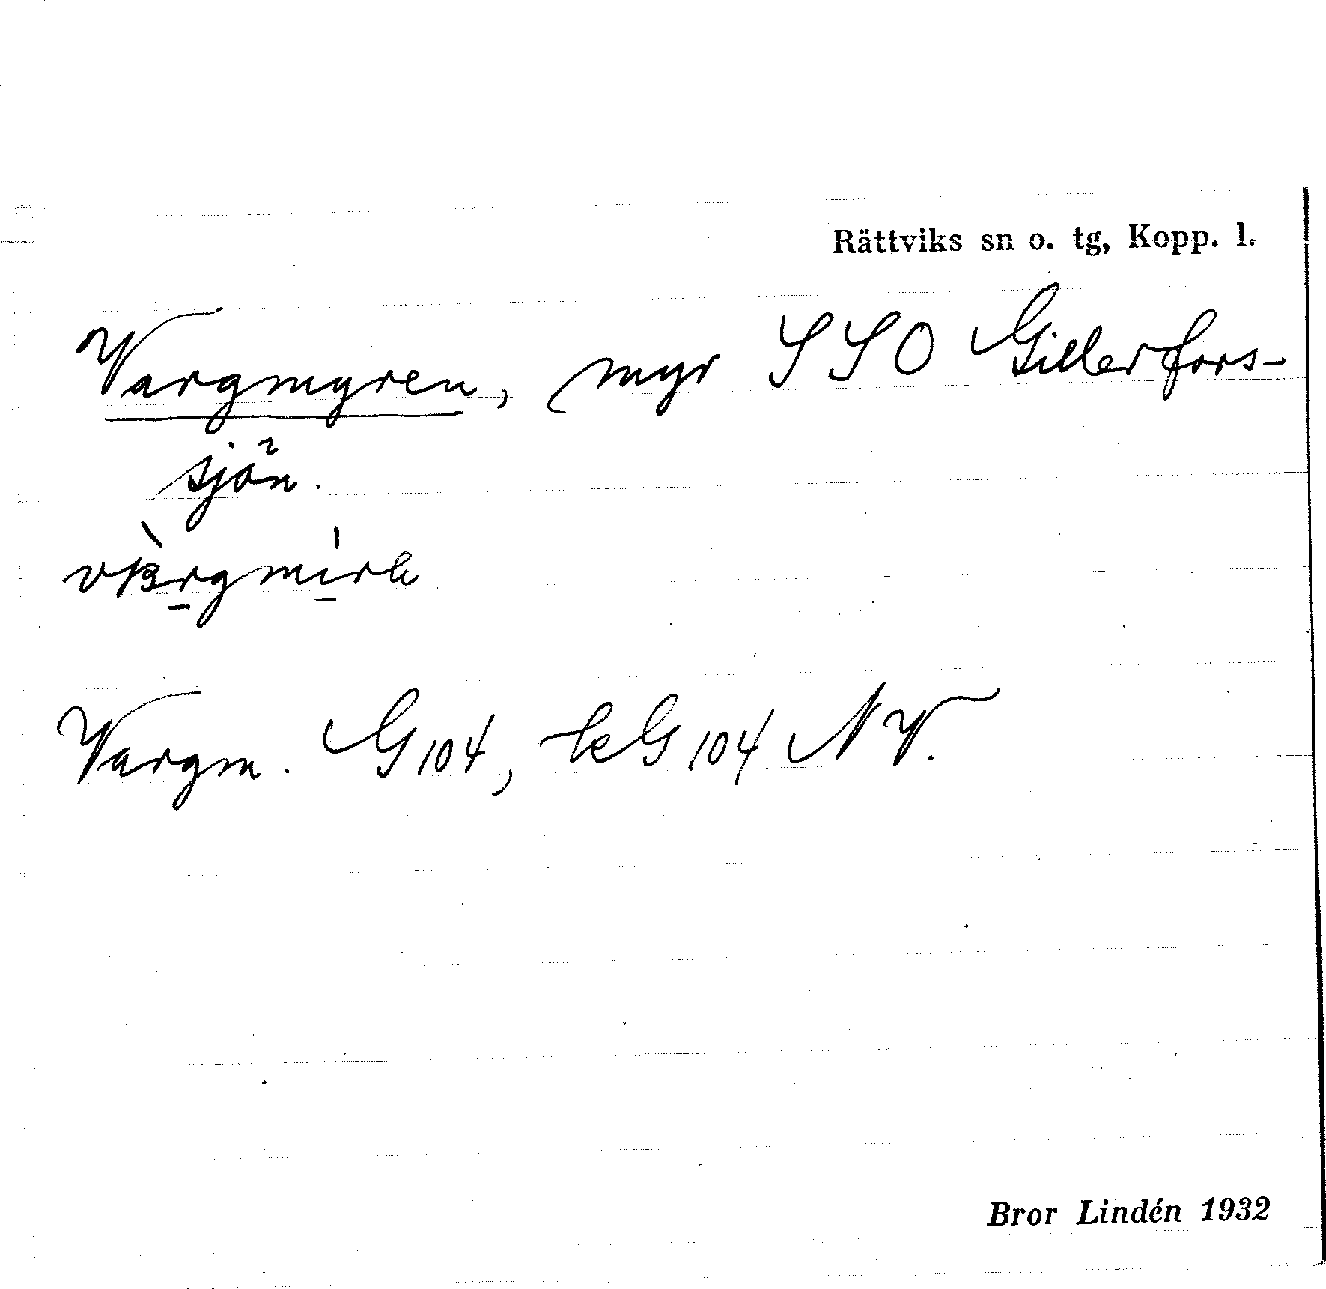 Rättviks sn o. tg, Kopp. l.
Vargmyren, myr SSO Gillerfors-
sjön.
Vargm. G 104, kG 104 NV.
Bror Lindén 1932